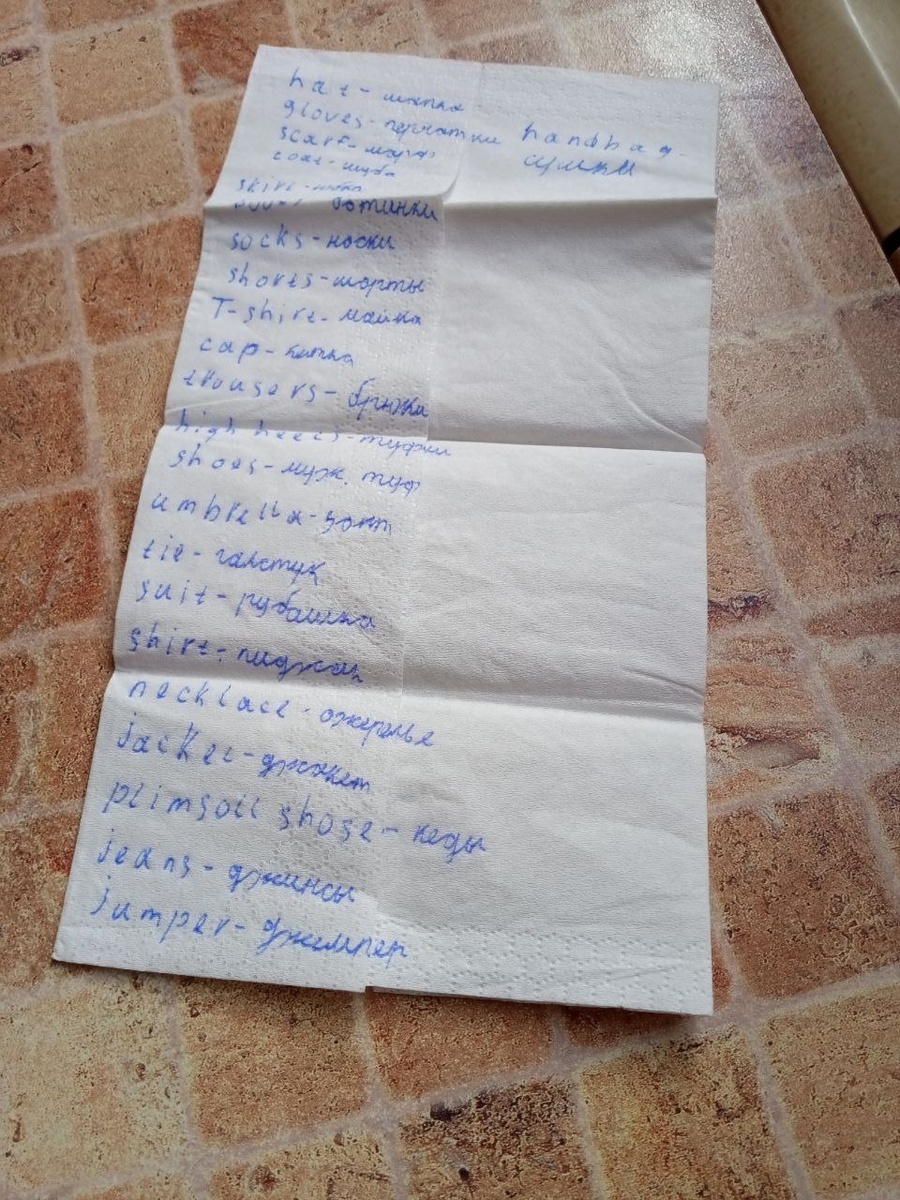 hat - шапка
gloves - перчатки
scarf - шарф
coat - шуба
skirt - юбка
ботинки
socks - носки
shorts - шорты
T-shirt - майка
cap - кепка
trousers - брюки
high heels - туфли
shoes - муж. туф
umbrella - зонт
tie - галстук
suit - рубашка
shirt - пиджак
necklace - ожерелье
jacket - джакет
plimsoll shose - кеды
jeans - джинсы
jumper - джемпер
handbag -
сумки